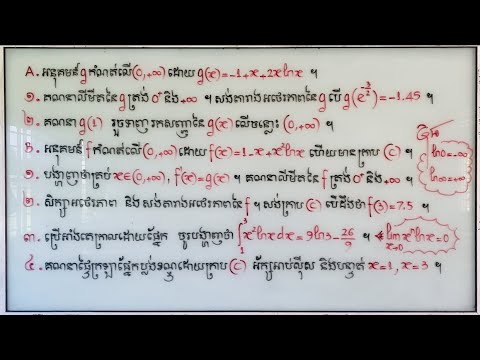 A. អនុគមន៍ g កំណត់លើ (0,+∞) ដោយ g(x) = -1 + x + 2xlnx ។
១. គណនាលីមីតនៃ g ត្រង់ 0⁺ និង +∞ ។ សង់តារាងអថេរភាពនៃ g បើ g(e^(-3/2)) = -1.45 ។
២. គណនា g(1) រួចទាញរកសញ្ញានៃ g(x) លើចន្លោះ (0,+∞) ។
B. អនុគមន៍ f កំណត់លើ (0,+∞) ដោយ f(x) = 1 - x + x²lnx ហើយមានក្រាប (C) ។
១. បង្ហាញថាគ្រប់ x∈(0,+∞), f'(x) = g(x) ។ គណនាលីមីតនៃ f ត្រង់ 0⁺ និង +∞ ។
២. សិក្សាអថេរភាព និងសង់តារាងអថេរភាពនៃ f ។ សង់ក្រាប (C) បើដឹងថា f(3) = 7.5 ។
៣. ប្រើអាំងតេក្រាលដោយផ្នែក ចូរបង្ហាញថា ∫₁³ x²lnxdx = 9ln3 - 26/9 ។
៤. គណនាផ្ទៃក្រឡាផ្នែកប្លង់ខណ្ឌដោយក្រាប (C) អ័ក្សអាប់ស៊ីស និងបន្ទាត់ x = 1, x = 3 ។
ln0 = -∞
ln∞ = +∞
lim x→0 xⁿlnx = 0